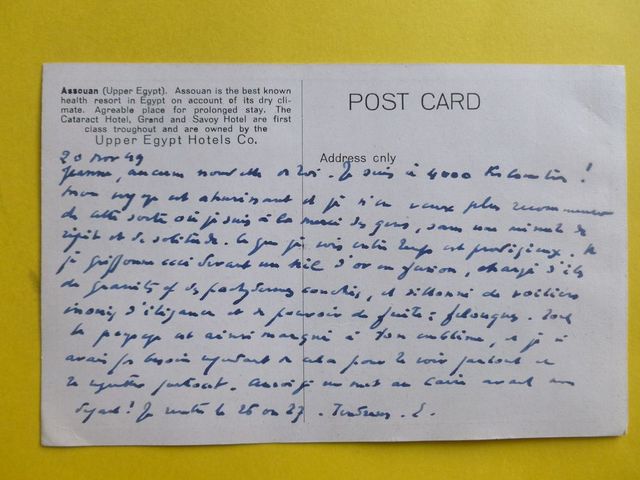 Assouan (Upper Egypt). Assouan is the best known
health resort in Egypt on account of its dry cli-
mate. Agreable place for prolonged stay. The
Cataract Hotel, Grand and Savoy Hotel are first
class troughout and are owned by the
Upper Egypt Hotels Co.
POST CARD
Address only
20 Nov 49
Jeanne, aucune nouvelle de toi. Je suis à 4000 Kilomètres !
Mon voyage est ahurissant et je n'en veux plus recommencer
de cette sorte où je suis à la merci des gens, sans une minute de
répit et de solitude. Ce que je vois entre temps est prodigieux. Je
je griffonne ceci devant un Nil d'or en fusion, chargé d'îles
de granit et de pachydermes couchés, et sillonné de voiliers
inouïs d'élégance et de pouvoir de fuite : felouques. Tout
le paysage est ainsi à ton sublime, et je
avais pas besoin de cela pour le voir partout et
le partout. Aussi je un mot au Caire avant mon
départ ! Je rentre le 26 ou 27. Tendresses.